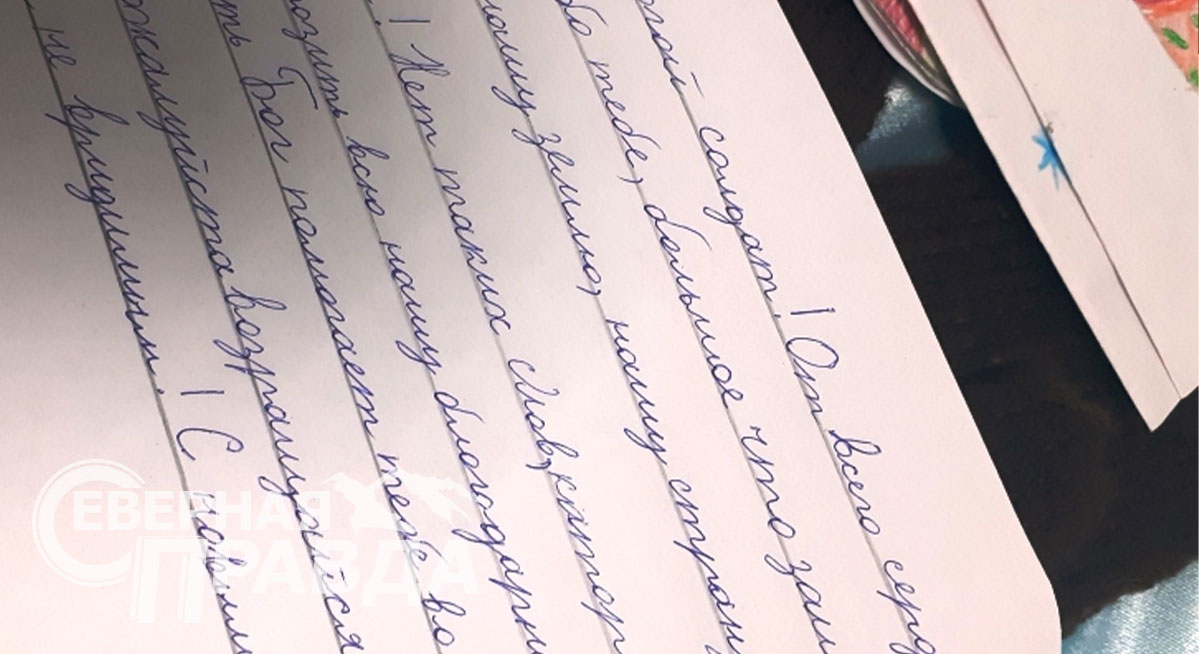 огой солдат! От всего серд
бо тебе, большое что защ
нашу землю, нашу стран
! Нет таких слов, котор
разить всю нашу благодарн
ть Бог помогает тебе во
ожалуйста возращайся
не вридимым! С новым
СЕВЕРНАЯ
ПРАВДА